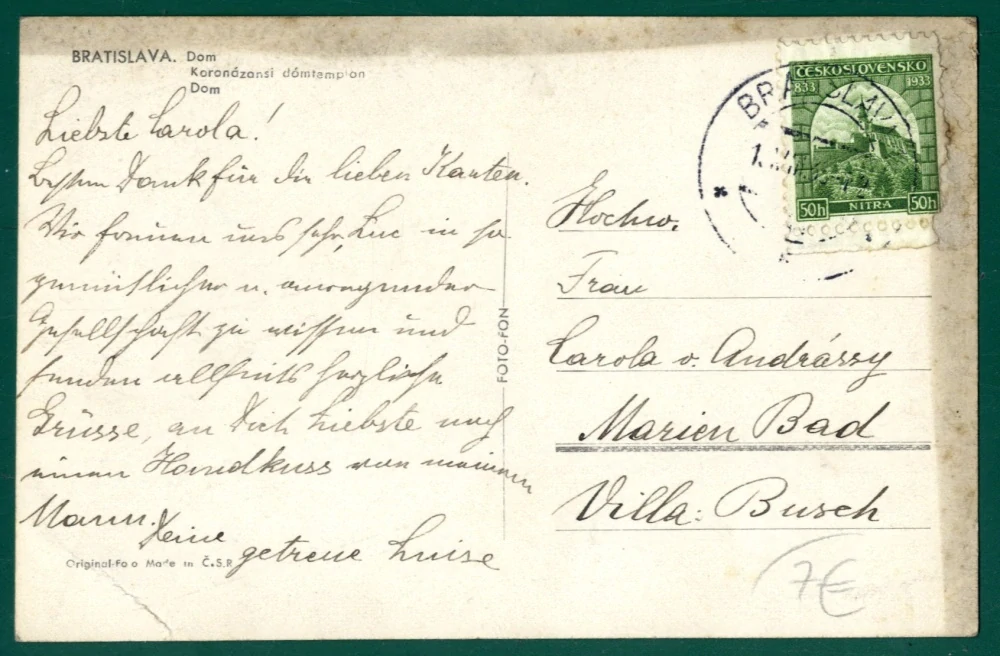 BRATISLAVA. Dom
Koronázansi dómtemplon
Dom
Liebste Carola!
Besten Dank für die lieben Karten.
Wir freuen uns sehr, Euc in so
gemütlicher u. anregender
Gesellschaft zu wissen und
senden allseits herzliche
Grüsse, an Dich Liebste noch
einen Handkuss von meinem
Mann.
Deine
getreue Luise
Original-Foto Made in Č.S.R
FOTO-FON
ČESKOSLOVENSKO
833 1933
50h NITRA 50h
BRATISLAVA
Hochw.
Frau
Carola v. Andrássy
Marien Bad
Villa: Busch
7€